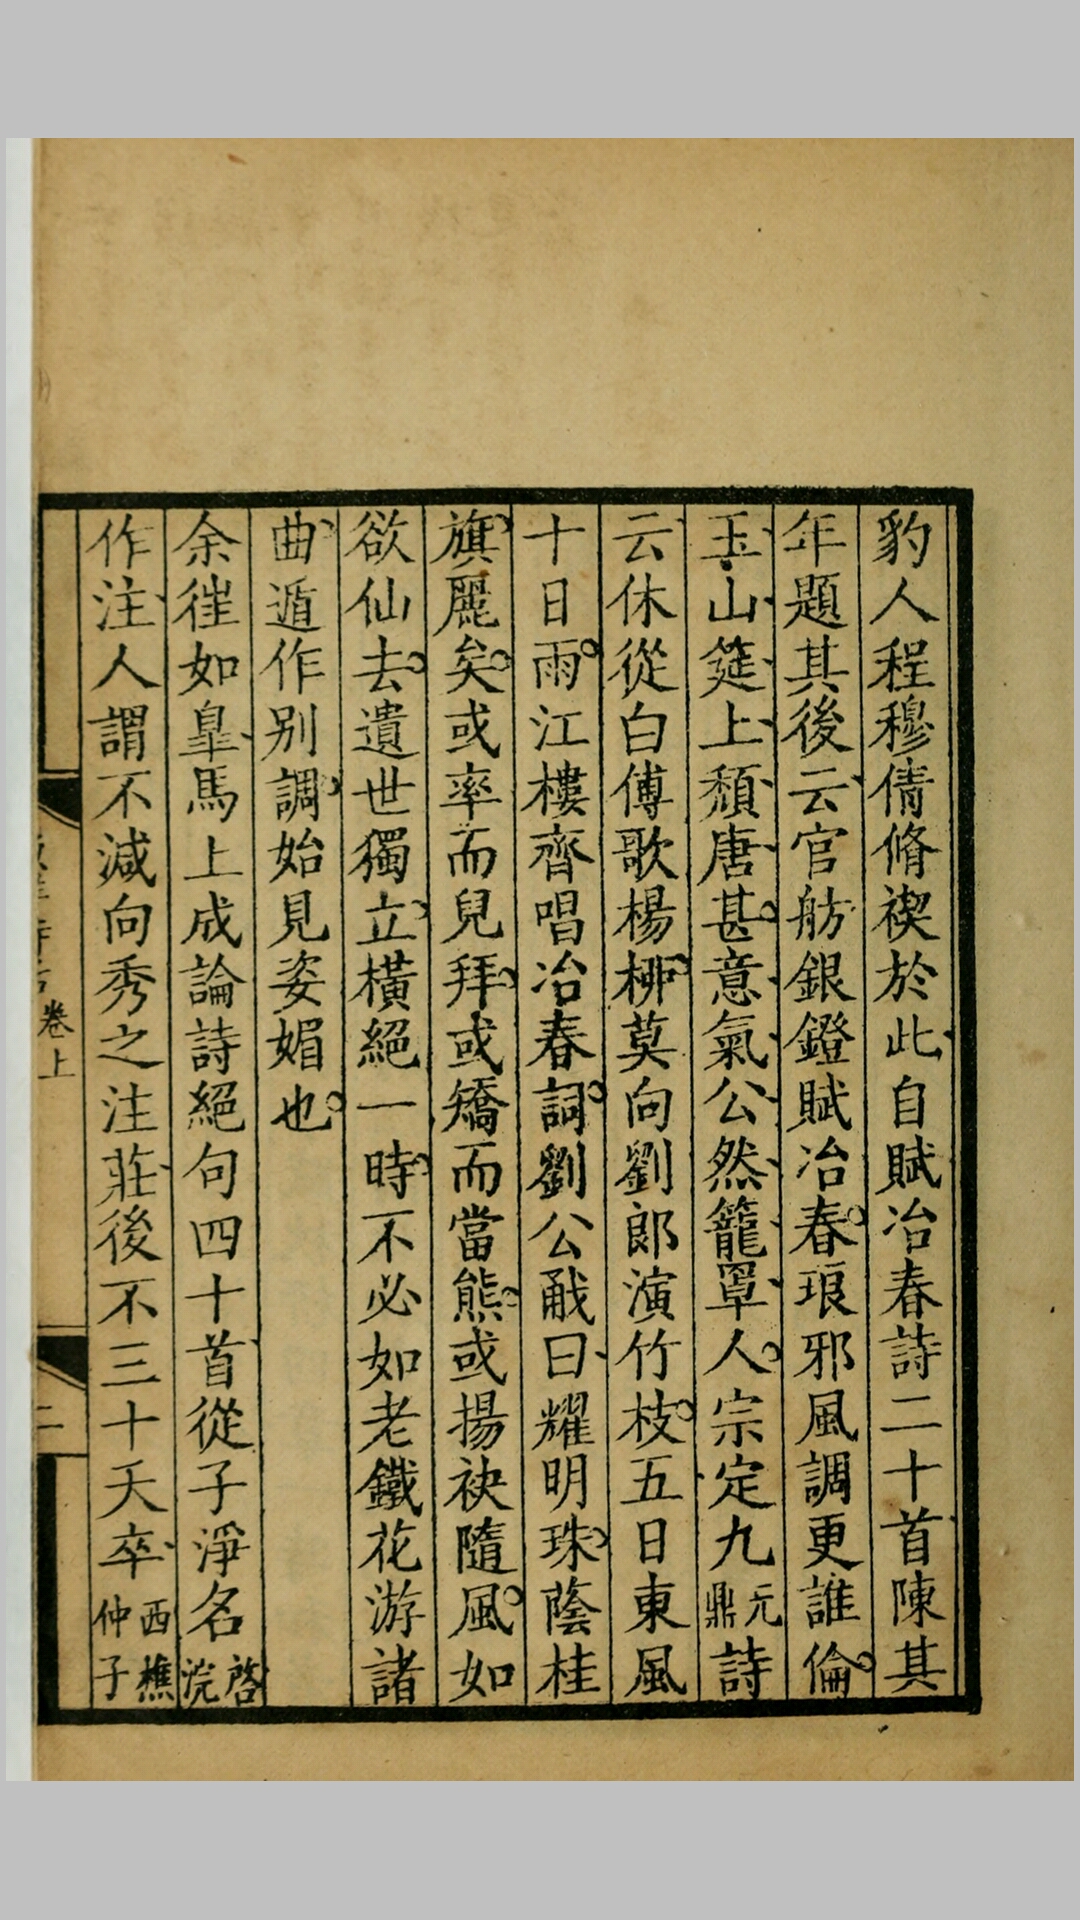 豹人程穆倩脩禊於此自賦冶春詩二十首陳其
年題其後云官舫銀鐙賦冶春琅邪風調更誰倫
玉山筵上頹唐甚意氣公然籠罩人宗定九元鼎詩
云休從白傅歌楊柳莫向劉郎演竹枝五日東風
十日雨江樓齊唱冶春詞劉公㦷曰耀明珠蔭桂
旗麗矣或率而兒拜或矯而當熊或揚袂隨風如
欲仙去遺世獨立橫絕一時不必如老鐵花游諸
曲遁作别調始見姿媚也
余徃如皐馬上成論詩絕句四十首從子淨名啓浣
作注人謂不減向秀之注莊後不三十夭卒西樵仲子
卷上
二